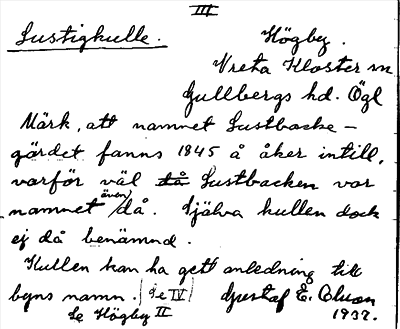 III
Lustigkulle.
Högby.
Vreta Kloster sn
Gullbergs hd. Ögl
Märk, att namnet Lustbacke-
gärdet fanns 1845 å åker intill,
varför väl då Lustbacken var
namnet även då. Själva kullen dock
ej då benämnd.
Kullen kan ha gett anledning till
byns namn. (se IV) Gustaf E. Oluson
Se Högby II 1932.